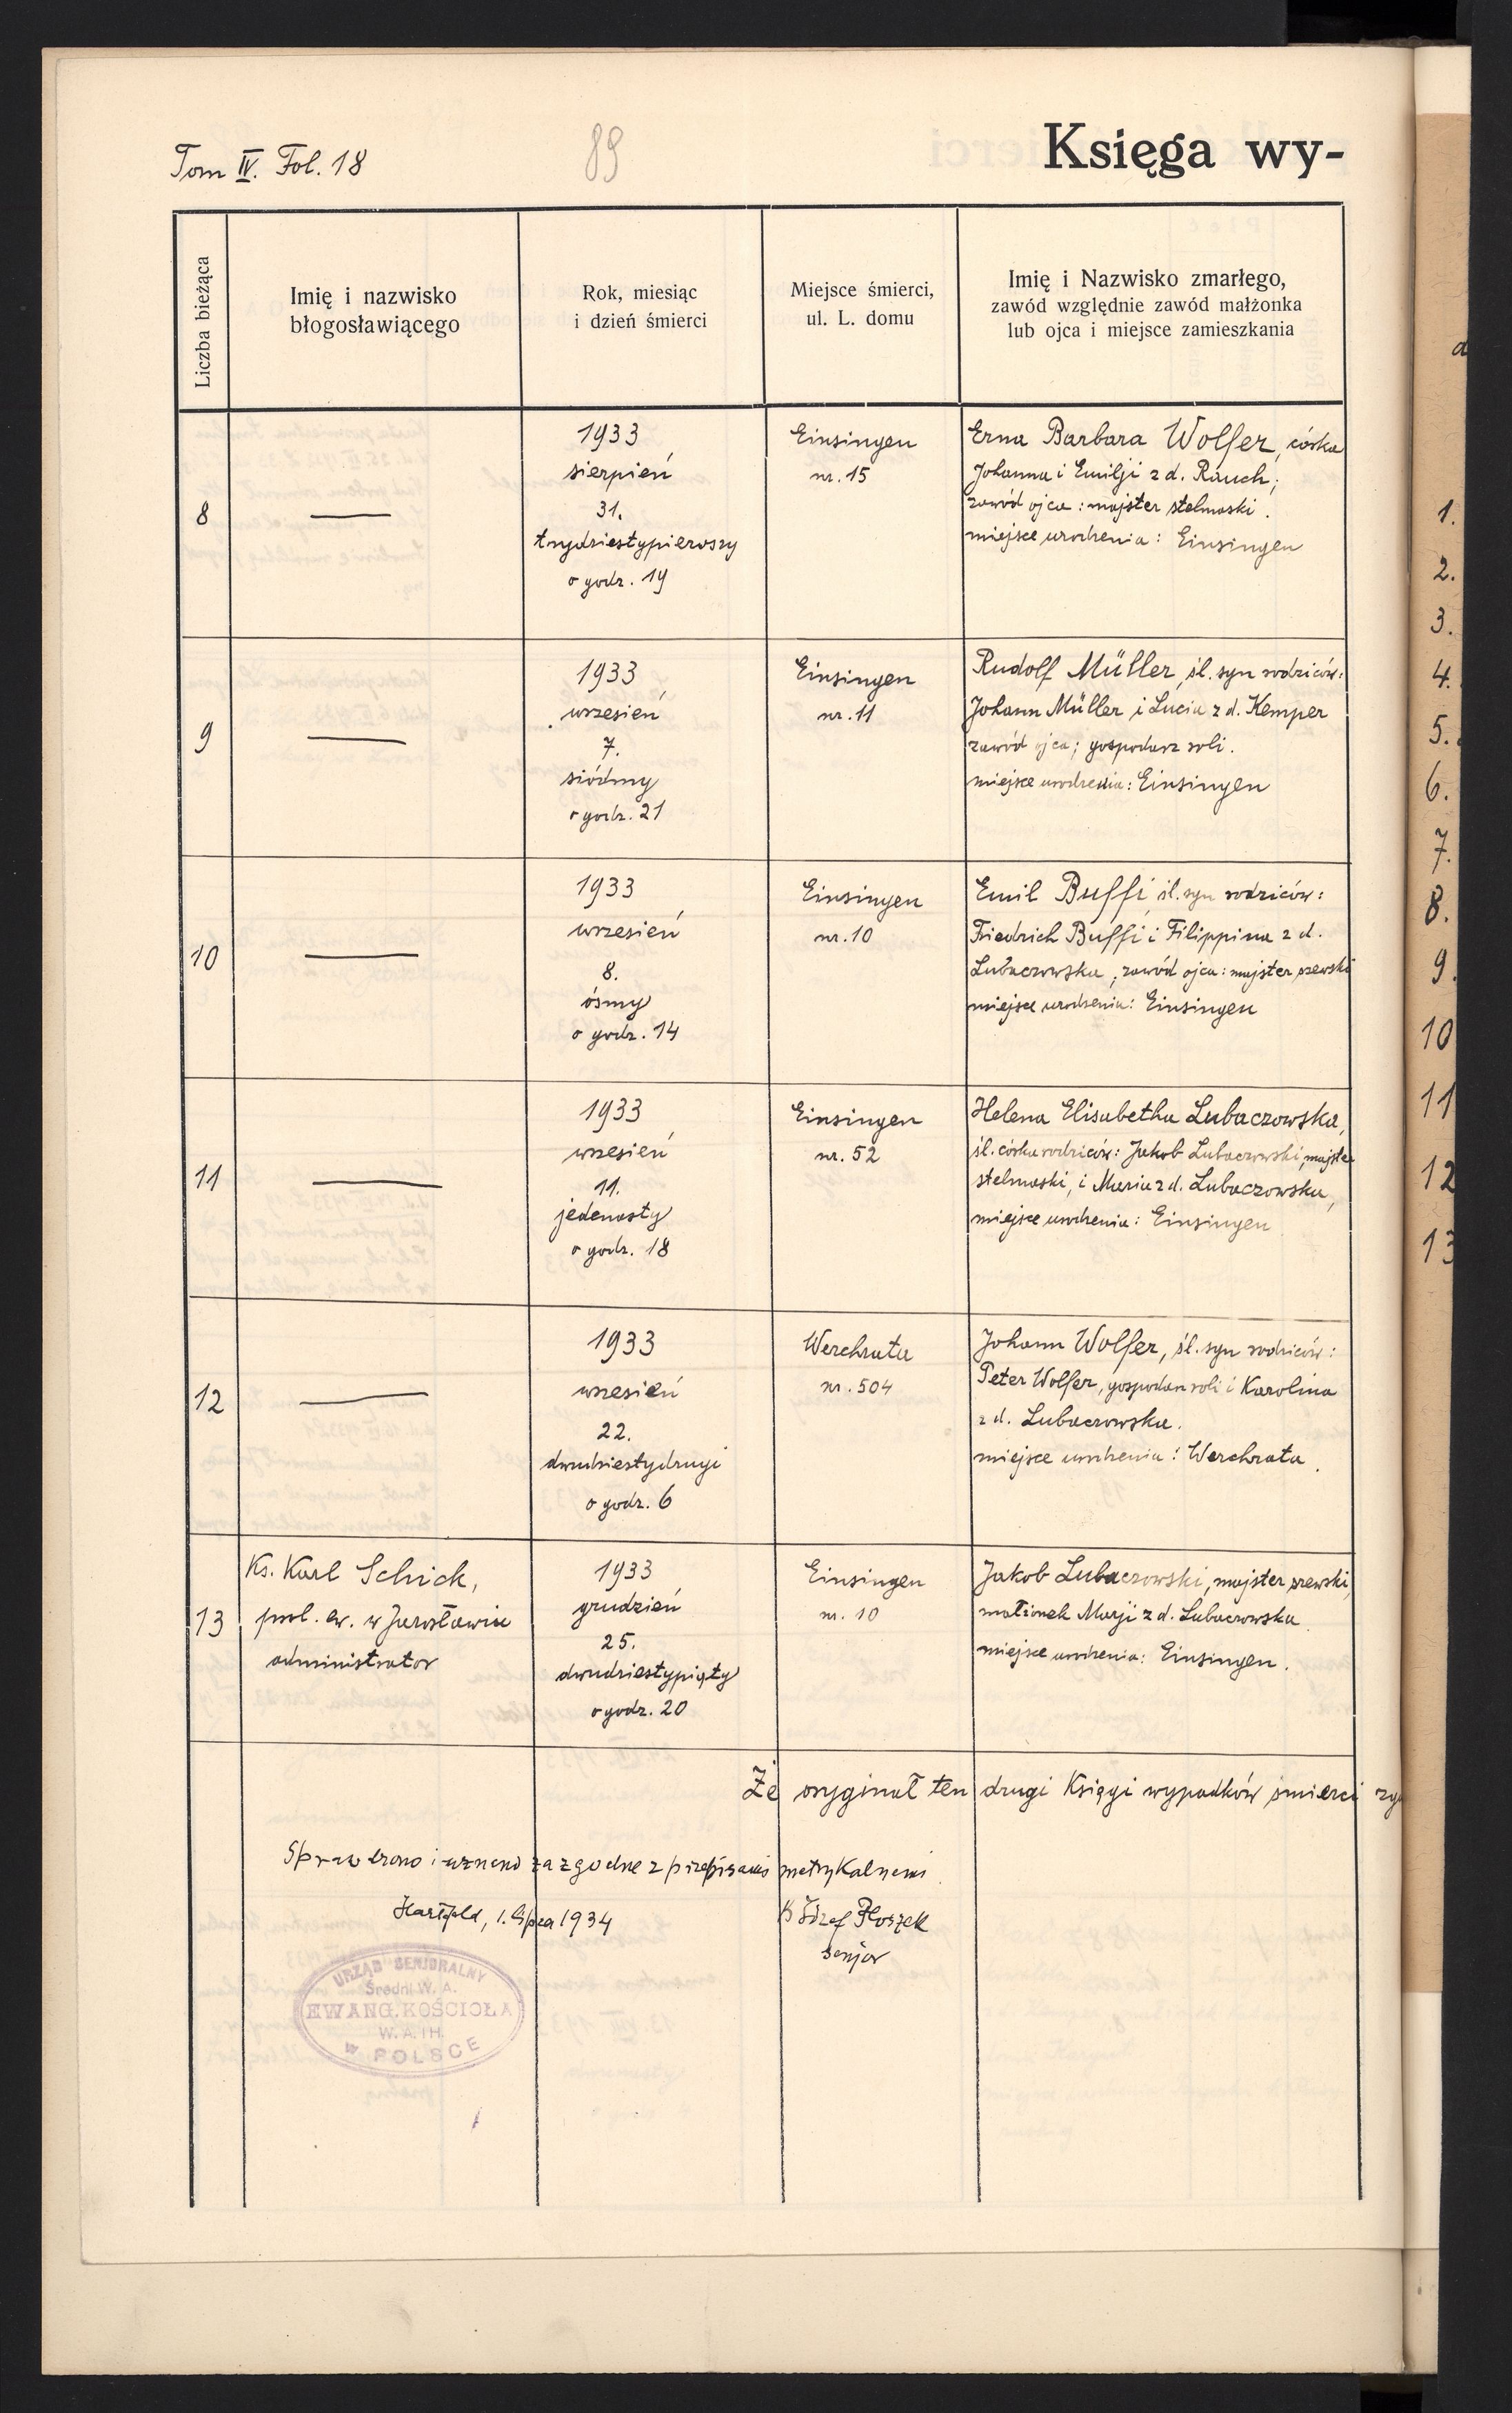 Tom IV. Fol. 18
89
Księga wy-
Liczba bieżąca
Imię i nazwisko
błogosławiącego
Rok, miesiąc
i dzień śmierci
Miejsce śmierci,
ul. L. domu
Imię i Nazwisko zmarłego,
zawód względnie zawód małżonka
lub ojca i miejsce zamieszkania
8
—
1933
sierpień
31.
trzydziestypierwszy
o godz. 19
Einsingen
nr. 15
Erna Barbara Wolfer, córka
Johanna i Emilji z d. Rauch;
zawód ojca: majster stelmaski.
miejsce urodzenia: Einsingen
9
—
1933
wrzesień
7.
siódmy
o godz. 21
Einsingen
nr. 11
Rudolf Müller, śl. syn rodziców:
Johann Müller i Lucia z d. Kemper
zawód ojca; gospodarz roli.
miejsce urodzenia: Einsingen
10
—
1933
wrzesień
8.
ósmy
o godz. 14
Einsingen
nr. 10
Emil Buffi śl. syn rodziców:
Friedrich Buffi i Filippina z d.
Lubaczowska, zawód ojca: majster szewski
miejsce urodzenia: Einsingen
11
—
1933
wrzesień
11.
jedenasty
o godz. 18
Einsingen
nr. 52
Helena Elisabetha Lubaczowska,
śl. córka rodziców: Jakob Lubaczowski, majster
stelmaski, i Maria z d. Lubaczowska,
miejsce urodzenia: Einsingen
12
—
1933
wrzesień
22.
dwudziestydrugi
o godz. 6
Werchrata
nr. 504
Johann Wolfer, śl. syn rodziców:
Peter Wolfer, gospodarz roli i Karolina
z d. Lubaczowska.
miejsce urodzenia: Werchrata.
13
Ks. Karl Schick,
prob. ew. w Jarosławiu
administrator
1933
grudzień
25.
dwudziestypiąty
o godz. 20
Einsingen
nr. 10
Jakob Lubaczowski, majster szewski,
małżonek Marji z d. Lubaczowska.
miejsce urodzenia: Einsingen.
Że oryginał ten drugi Księgi wypadków śmierci zg
Sprawdzono i uznano za zgodne z przepisami metrykalnemi.
Hartfeld, 1. lipca 1934
Ks Józef Ploszek
senjor
URZĄD SENJORALNY
Średni W. A.
EWANG. KOŚCIOŁA
W. A. I H.
W POLSCE
1.
2.
3.
4.
5.
6.
7.
8.
9.
10
11
12
13